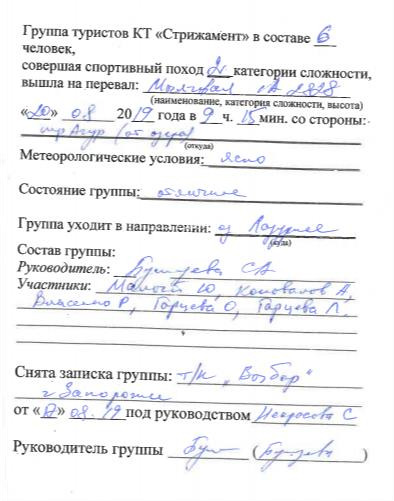 Группа туристов КТ «Стрижамент» в составе 6
человек,
совершая спортивный поход 2 категории сложности,
вышла на перевал: 1А 2828
(наименование, категория сложности, высота)
«20» 08 2019 года в 9 ч. 15 мин. со стороны:
(от озера)
(откуда)
Метеорологические условия: ясно
Состояние группы: отличное
Группа уходит в направлении: оз
(куда)
Состав группы:
Руководитель: СА
Участники: Ю, Коновалов А,
Власенко Р, Гарцева О, Гарцева Л.
Снята записка группы: т/к
г Запорожье
от « » 08. 19 под руководством Некрасова С
Руководитель группы ( )